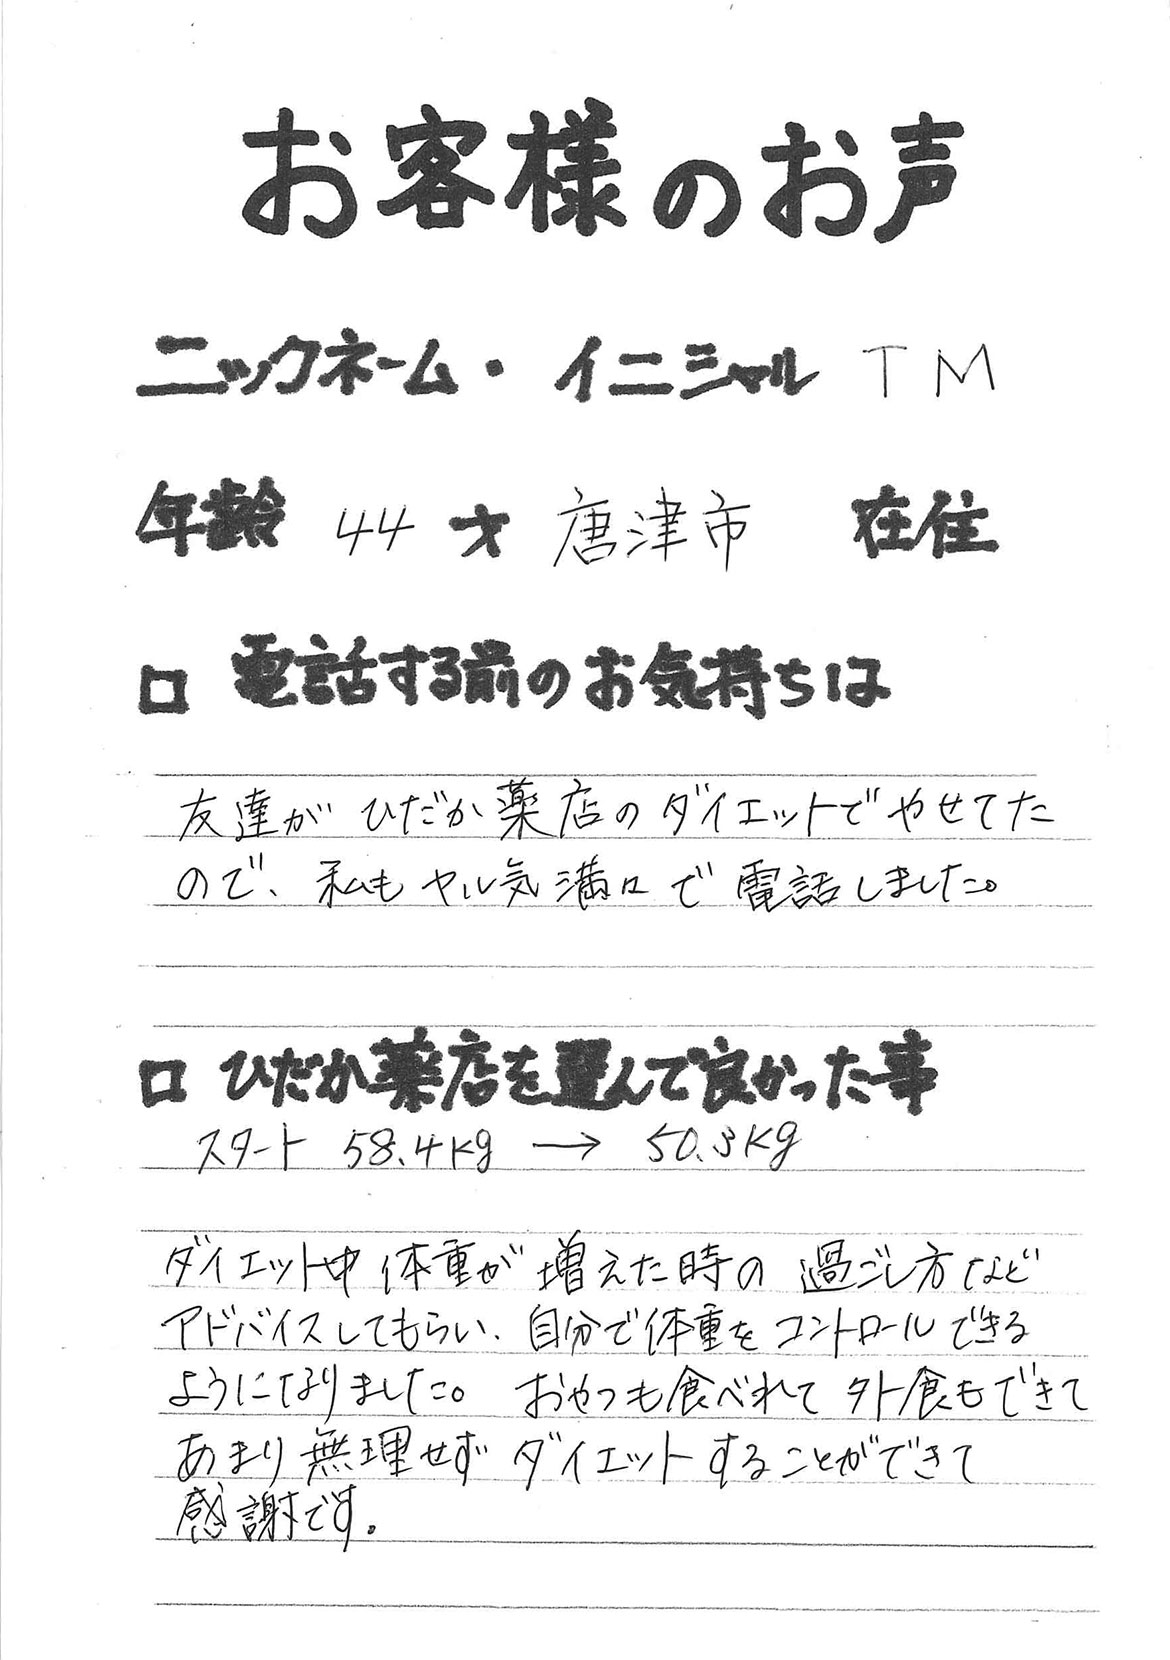 お客様のお声
ニックネーム・イニシャル TM
年齢 44 才 唐津市 在住
□ 電話する前のお気持ちは
友達が ひだか薬店のダイエットで やせてた
ので、私も ヤル気満々で 電話しました。
□ ひだか薬店を選んで良かった事
スタート 58.4kg → 50.3kg
ダイエット中 体重が 増えた時の 過ごし方など
アドバイスしてもらい、自分で体重を コントロールできる
ようになりました。 おやつも食べれて 外食もできて
あまり無理せず ダイエットすることができて
感謝です。